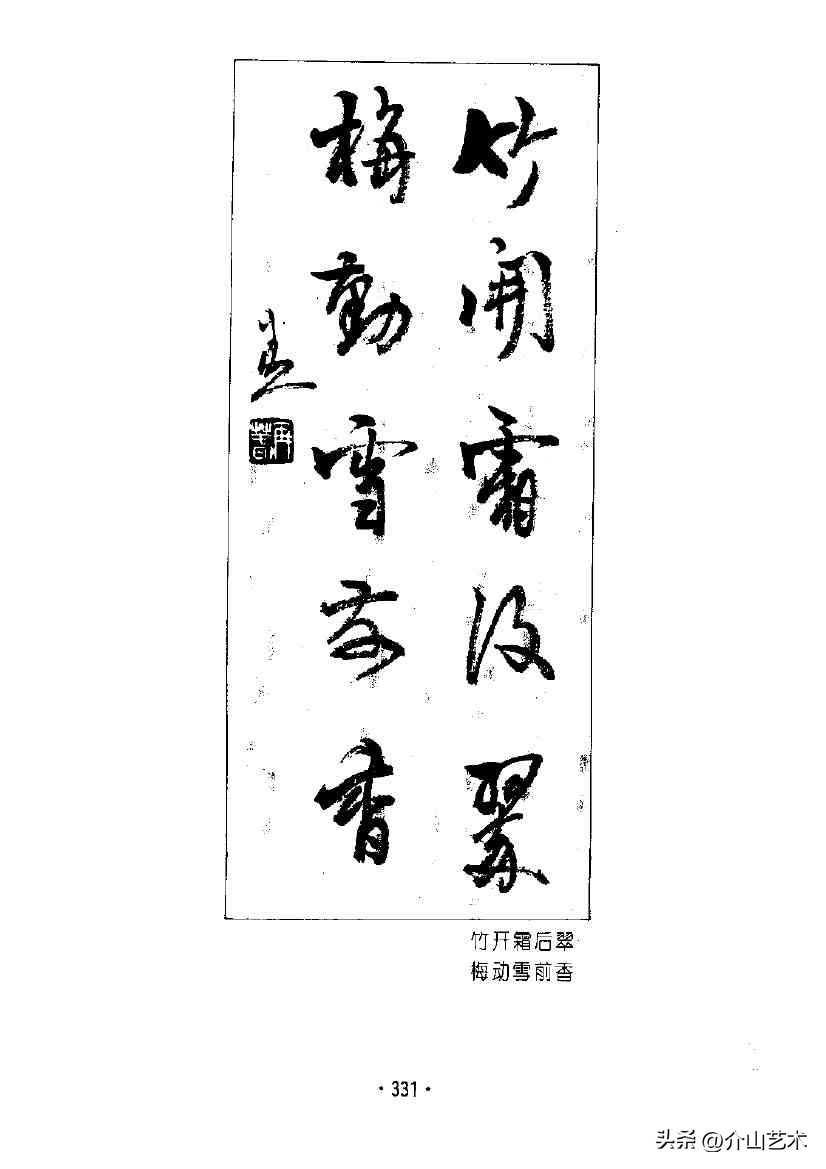 竹開霜後翠
梅動雪前香
竹开霜后翠
梅动雪前香
·331·
头条 @介山艺术